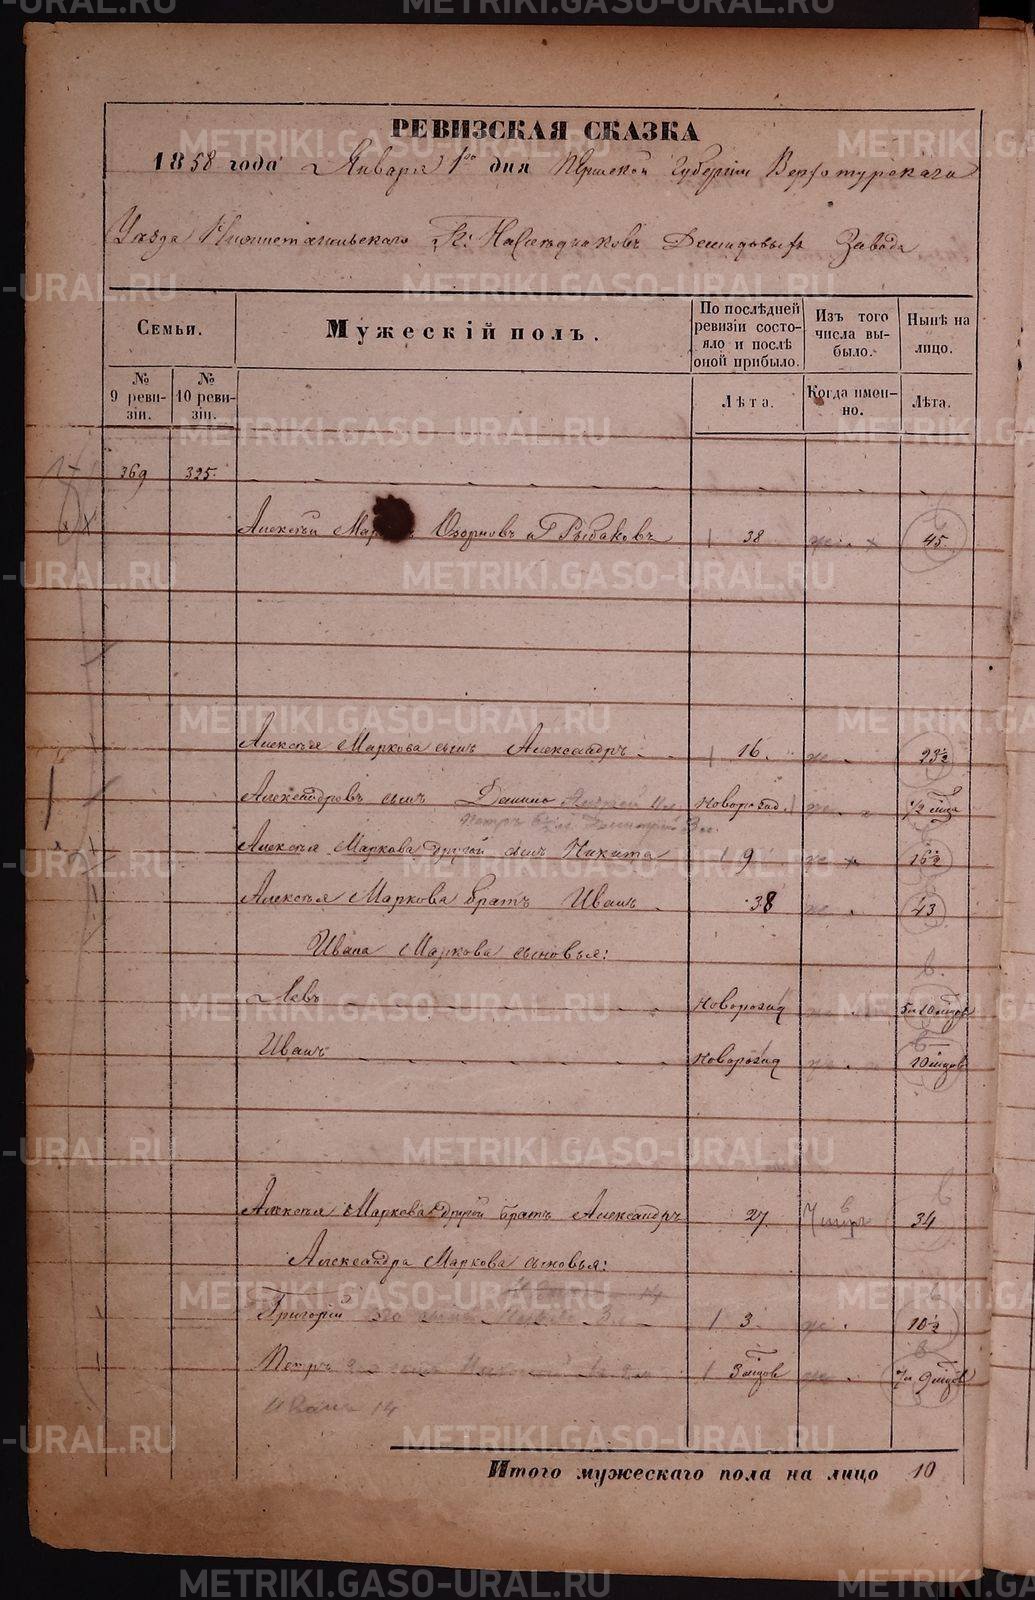 РЕВИЗСКАЯ СКАЗКА
1858 года Января 1го дня Пермской Губернiи Верхотурскаго
Уѣзда Нижнетагильскаго Гг: Наслѣдниковъ Демидовыхъ Завода
Семьи.
Мужескiй полъ.
По послѣдней ревизiи состояло и послѣ оной прибыло.
Изъ того числа выбыло.
Нынѣ на лицо.
№ 9 ревизiи.
№ 10 ревизiи.
Лѣта.
Когда именно.
Лѣта.
369 325.
Алексѣй Озорновъ и Рыбаковъ 38 45.
Алексѣя Маркова сынъ Александръ 16 23½
Александровъ сынъ Новорожд. ½ мѣсяца
Алексѣя Маркова другой сынъ Никита 9 16½
Алексѣя Маркова братъ Иванъ 38 43
Ивана Маркова сыновья:
Левъ Новорожд 5 и 10 мѣсцов
Иванъ Новорожд 10 мѣсцов
Алексѣя Маркова другой братъ Александръ 27 34
Александра Маркова сыновья:
Григорiй 3 10½
Петръ 3 мѣсцов 7 и 9 мѣсцов
Иванъ 14
Итого мужескаго пола на лицо 10
METRIKI.GASO-URAL.RU